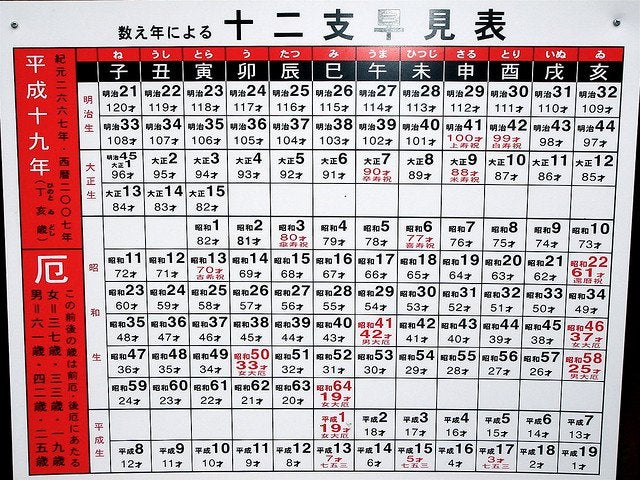 数え年による 十二支早見表
平成十九年
(丁亥歳)
ひのと ゐ どし
紀元二六六七年・西暦二〇〇七年
厄
この前後の歳は前厄・後厄にあたる
女=三七歳・三三歳・一九歳
男=六一歳・四二歳・二五歳
ね うし とら う たつ み うま ひつじ さる とり いぬ ゐ
子 丑 寅 卯 辰 巳 午 未 申 酉 戌 亥
明治生
明治21 明治22 明治23 明治24 明治25 明治26 明治27 明治28 明治29 明治30 明治31 明治32
120才 119才 118才 117才 116才 115才 114才 113才 112才 111才 110才 109才
明治33 明治34 明治35 明治36 明治37 明治38 明治39 明治40 明治41 明治42 明治43 明治44
108才 107才 106才 105才 104才 103才 102才 101才 100才 99才 98才 97才
上寿祝 白寿祝
大正生
明治45 大正1 大正2 大正3 大正4 大正5 大正6 大正7 大正8 大正9 大正10 大正11 大正12
96才 95才 94才 93才 92才 91才 90才 89才 88才 87才 86才 85才
卒寿祝 米寿祝
大正13 大正14 大正15
84才 83才 82才
昭和生
昭和1 昭和2 昭和3 昭和4 昭和5 昭和6 昭和7 昭和8 昭和9 昭和10
82才 81才 80才 79才 78才 77才 76才 75才 74才 73才
傘寿祝 喜寿祝
昭和11 昭和12 昭和13 昭和14 昭和15 昭和16 昭和17 昭和18 昭和19 昭和20 昭和21 昭和22
72才 71才 70才 69才 68才 67才 66才 65才 64才 63才 62才 61才
古希祝 還暦祝
昭和23 昭和24 昭和25 昭和26 昭和27 昭和28 昭和29 昭和30 昭和31 昭和32 昭和33 昭和34
60才 59才 58才 57才 56才 55才 54才 53才 52才 51才 50才 49才
昭和35 昭和36 昭和37 昭和38 昭和39 昭和40 昭和41 昭和42 昭和43 昭和44 昭和45 昭和46
48才 47才 46才 45才 44才 43才 42才 41才 40才 39才 38才 37才
男大厄 女大厄
昭和47 昭和48 昭和49 昭和50 昭和51 昭和52 昭和53 昭和54 昭和55 昭和56 昭和57 昭和58
36才 35才 34才 33才 32才 31才 30才 29才 28才 27才 26才 25才
女大厄 男大厄
昭和59 昭和60 昭和61 昭和62 昭和63 昭和64
24才 23才 22才 21才 20才 19才
女大厄
平成生
平成1 平成2 平成3 平成4 平成5 平成6 平成7
19才 18才 17才 16才 15才 14才 13才
女大厄
平成8 平成9 平成10 平成11 平成12 平成13 平成14 平成15 平成16 平成17 平成18 平成19
12才 11才 10才 9才 8才 7才 6才 5才 4才 3才 2才 1才
七五三 七五三 七五三